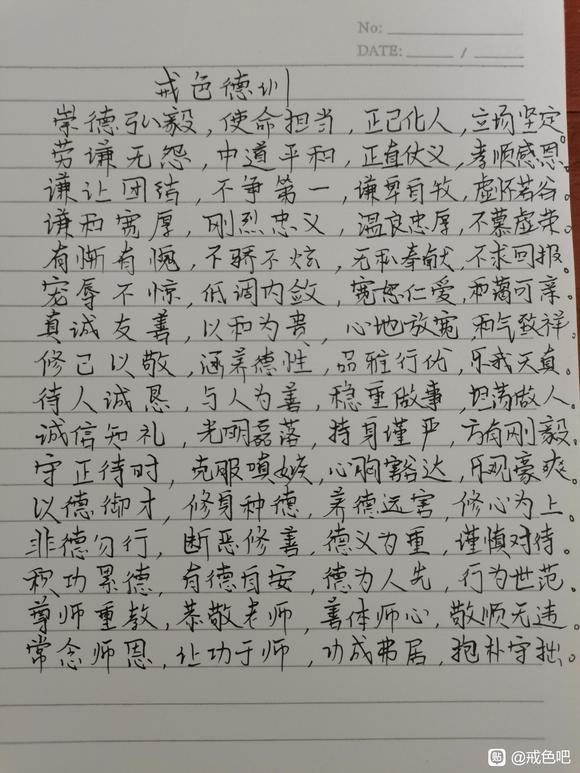 No:
DATE: /
戒色德训
崇德弘毅，使命担当，正己化人，立场坚定。
劳谦无怨，中道平和，正直仗义，孝顺感恩。
谦让团结，不争第一，谦卑自牧，虚怀若谷。
谦和宽厚，刚烈忠义，温良忠厚，不慕虚荣。
有惭有愧，不骄不炫，无私奉献，不求回报。
宠辱不惊，低调内敛，宽恕仁爱，和蔼可亲。
真诚友善，以和为贵，心地放宽，和气致祥。
修己以敬，涵养德性，品雅行优，乐我天真。
待人诚恳，与人为善，稳重做事，坦荡做人。
诚信知礼，光明磊落，持身谨严，方向刚毅。
守正待时，克服嗔嫉，心胸豁达，乐观豪爽。
以德御才，修身种德，养德远害，修心为上。
非德勿行，断恶修善，德义为重，谨慎对待。
积功累德，有德自安，德为人先，行为世范。
尊师重教，恭敬老师，善体师心，敬顺无违。
常念师恩，让功于师，功成弗居，抱朴守拙。
贴 @戒色吧